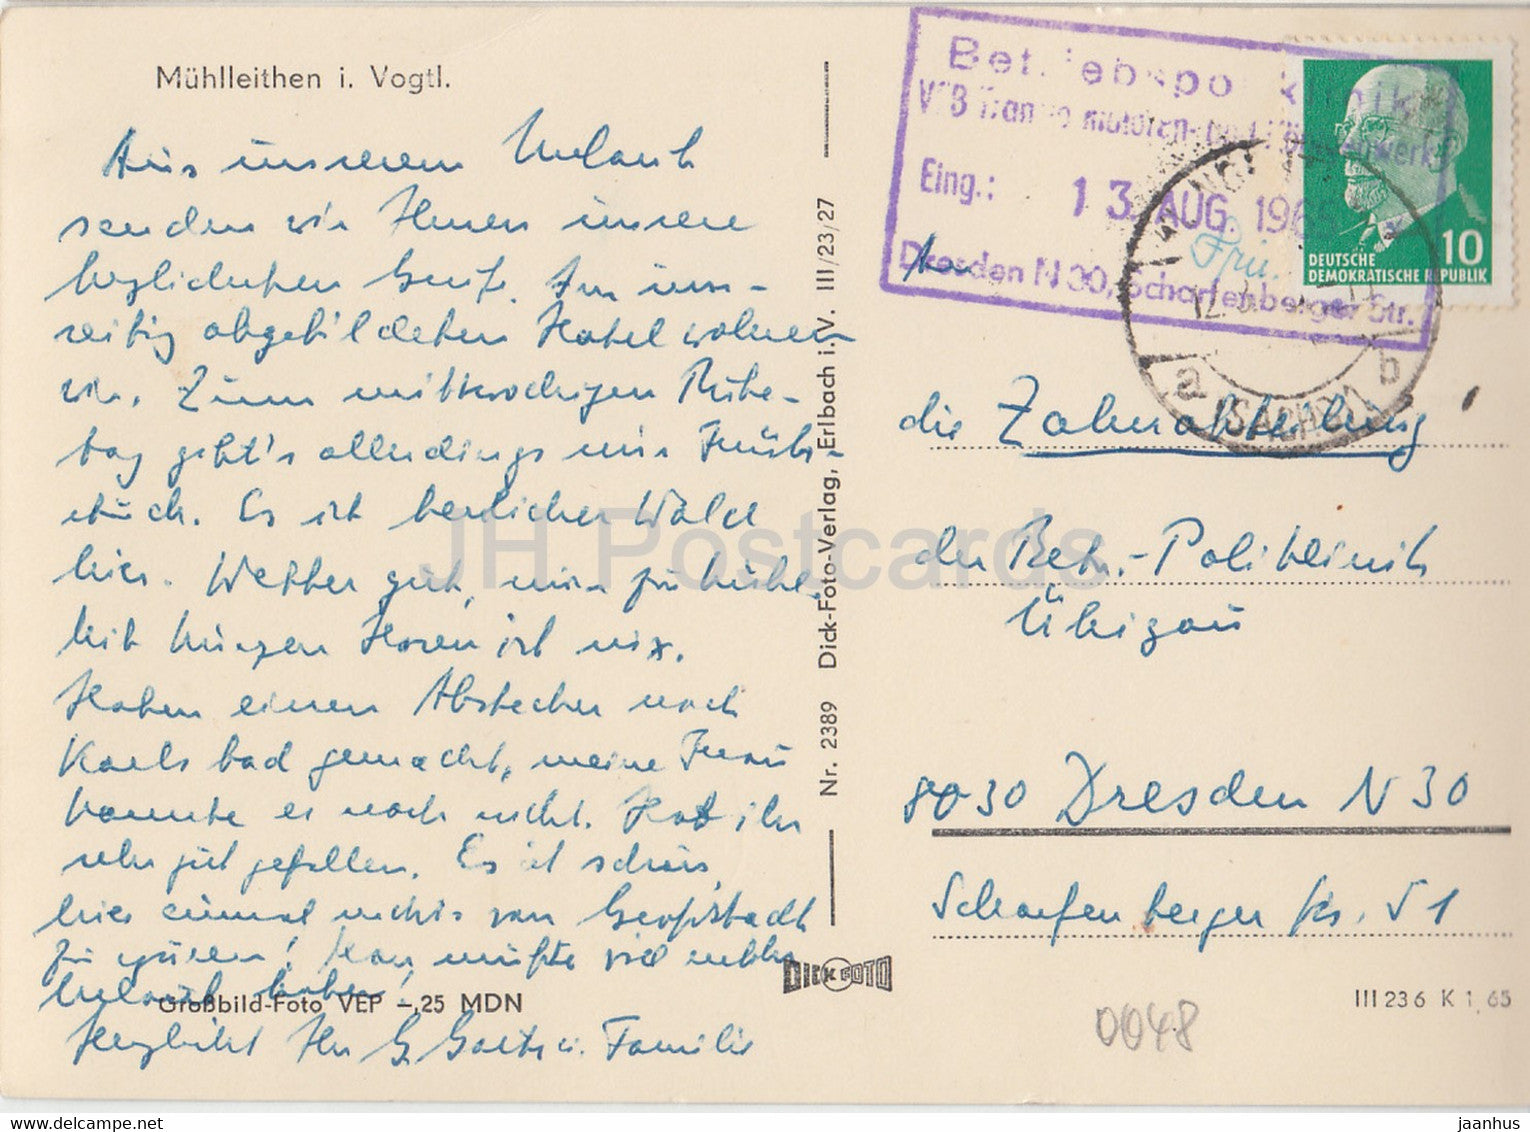 Mühlleithen i. Vogtl.
Aus unserem Urlaub
senden wir Ihnen unsere
herzlichsten Grüße. Im um-
seitig abgebildeten Hotel wohnen
wir. Zum mittwochigen Ruhe-
tag geht's allerdings nur Früh-
stück. Es ist herrlicher Wald
hier. Wetter gut, nur zu kühl,
mit kurzen Hosen ist nix.
Haben einen Abstecher nach
Karlsbad gemacht, meine Frau
kannte es noch nicht. Hat ihr
sehr gut gefallen. Es ist schön,
hier einmal nichts von Großstadt
zu spüren! Man müßte viel mehr
Urlaub haben!
Großbild-Foto VEP -,25 MDN
Herzlichst Ihr G. Goetz u. Familie
Nr. 2389 Dick-Foto-Verlag, Erlbach i. V. III/23/27
DICK FOTO
Betriebspoliklinik
VEB
Eing.: 13. AUG. 196
Dresden N 30, Scharfenberger Str.
DEUTSCHE
DEMOKRATISCHE REPUBLIK
10
a b
An
die Zahnabteilung
der Betr.-Poliklinik
Übigau
8030 Dresden N 30
Scharfenberger Str. 51
III 23 6 K 1, 65
0048
JH Postcards
www.delcampe.net
jaanhus